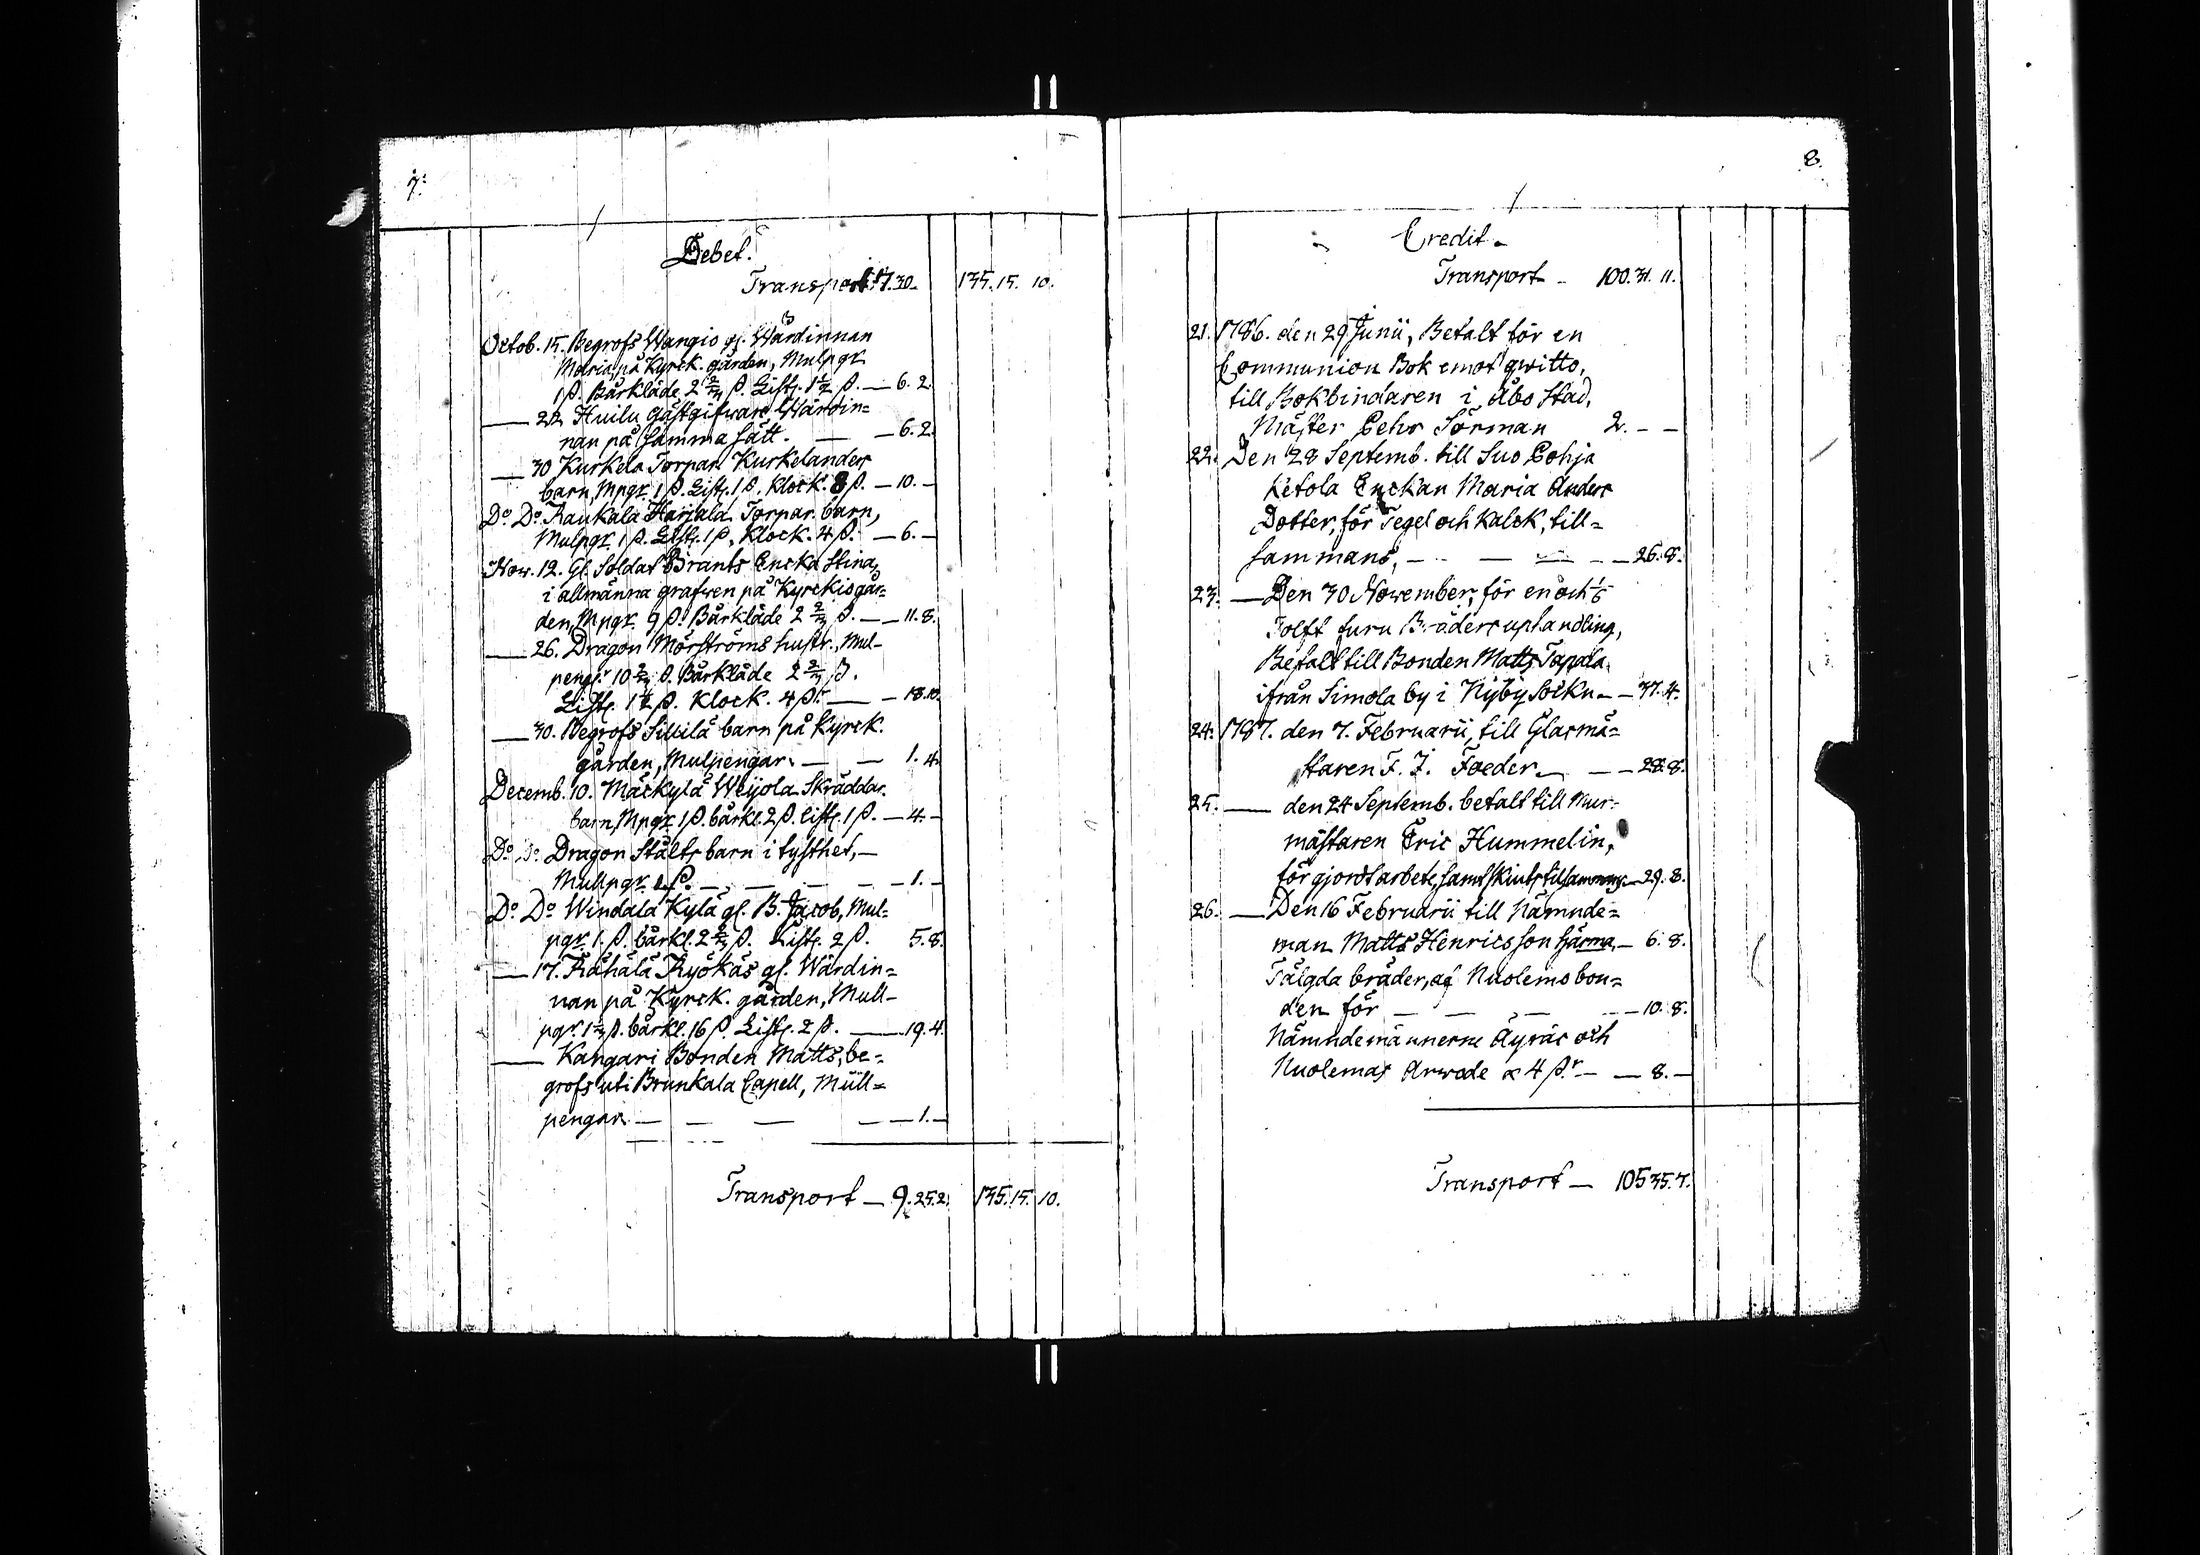 7.
Debet.
Transport 17.30. 135.15.10.
Octob. 15. Begrofs Wangio gl. Wärdinnan
Maria på Kyrck. gården, Mulpgr
1 ß. Bårkläde 2 2/3 ß. Listf. 1 1/2 ß. — 6.2.
— 22 Huilu Gästgifware Wärdin=
nan på samma sätt. — — 6.2.
— 30 Kurkela Torpar Kurkelander
barn, Mpgr. 1 ß. Listf. 1 ß. Klock. 8 ß. — 10. —
Do. Do. Raukala Harjala Torpar. barn,
Mulpgr. 1 ß. Listf. 1 ß. Klock. 4 ß. — 6. —
Now. 12. Gl. Soldat Brants Encka Stina,
i allmänna grafwen på Kyrckisgår=
den, Mpgr. 9 ß. Bårkläde 2 2/3 ß. — — 11.8.
— 26. Dragon Mörströms hustr., Mul-
pengr 10 2/3 ß. Bårkläde 2 2/3 ß.
Listf. 1 1/2 ß. Klock. 4 ß. — — 18.10.
— 30. Begrofs Sillilä barn på Kyrck.
gården, Mulpengar. — — 1.4.
Decemb. 10. Mäckylä Weijola Skräddar.
barn, Mpgr 1 ß. bårkl. 2 ß. Listf. 1 ß. — 4. —
Do. Do. Dragon Stålts barn i tysthet, —
Mullpgr. 1 ß. — — — — 1. —
Do. Do. Windala Kylä gl. B. Jacob, Mul=
pgr. 1. ß. bårkl. 2 2/3 ß. Listf. 2 ß. 5.8.
— 17. Rähälä Ryökäs gl. Wärdin=
nan på Kyrck. gården, Mull-
pgr. 1 1/3 ß. bårkl. 16 ß. Listf. 2 ß. — 19.4.
— Kangari Bonden Matts, be=
grofs uti Brunkala Capell, Mull=
pengar — — — — — 1. —
Transport — 9.25.2. 135.15.10.
8.
Credit.
Transport — 100.31.11.
21. 1786. den 29 Junii, Betalt för en
Communion Bok emot qwitto,
till Bokbindaren i Åbo Stad,
Mäster Pehr Sörman 2. — —
22. Den 28 Septemb. till Suo Pohja
Ketola Enckan Maria Anders
Dotter, för Tegel och Kalck, till=
sammans, — — — — 26.8.
23. — Den 30 November, för en och 1/5
Tolft furu Bräders uphandling,
Betalt till Bonden Matts Tapala
ifrån Simola by i Nyby Sockn — — 37.4.
24. 1787. den 7. Februarii, till Glasmä=
staren F. J. Foeder — — — 28.8.
25. — den 24 Septemb. betalt till Mur=
mästaren Eric Hummelin,
för gjordt arbete, samt skiuts tilsammans — 29.8.
26. — Den 16 Februarii till Nämnde=
man Matts Henricsson Härma — 6.8.
Tälgda bräder, af Nuolemo bon=
den för — — — — 10.8.
Nämndemännerne Äyräs och
Nuolemas Arwode a 4 ß.r — — 8. —
Transport — 105 35.7.